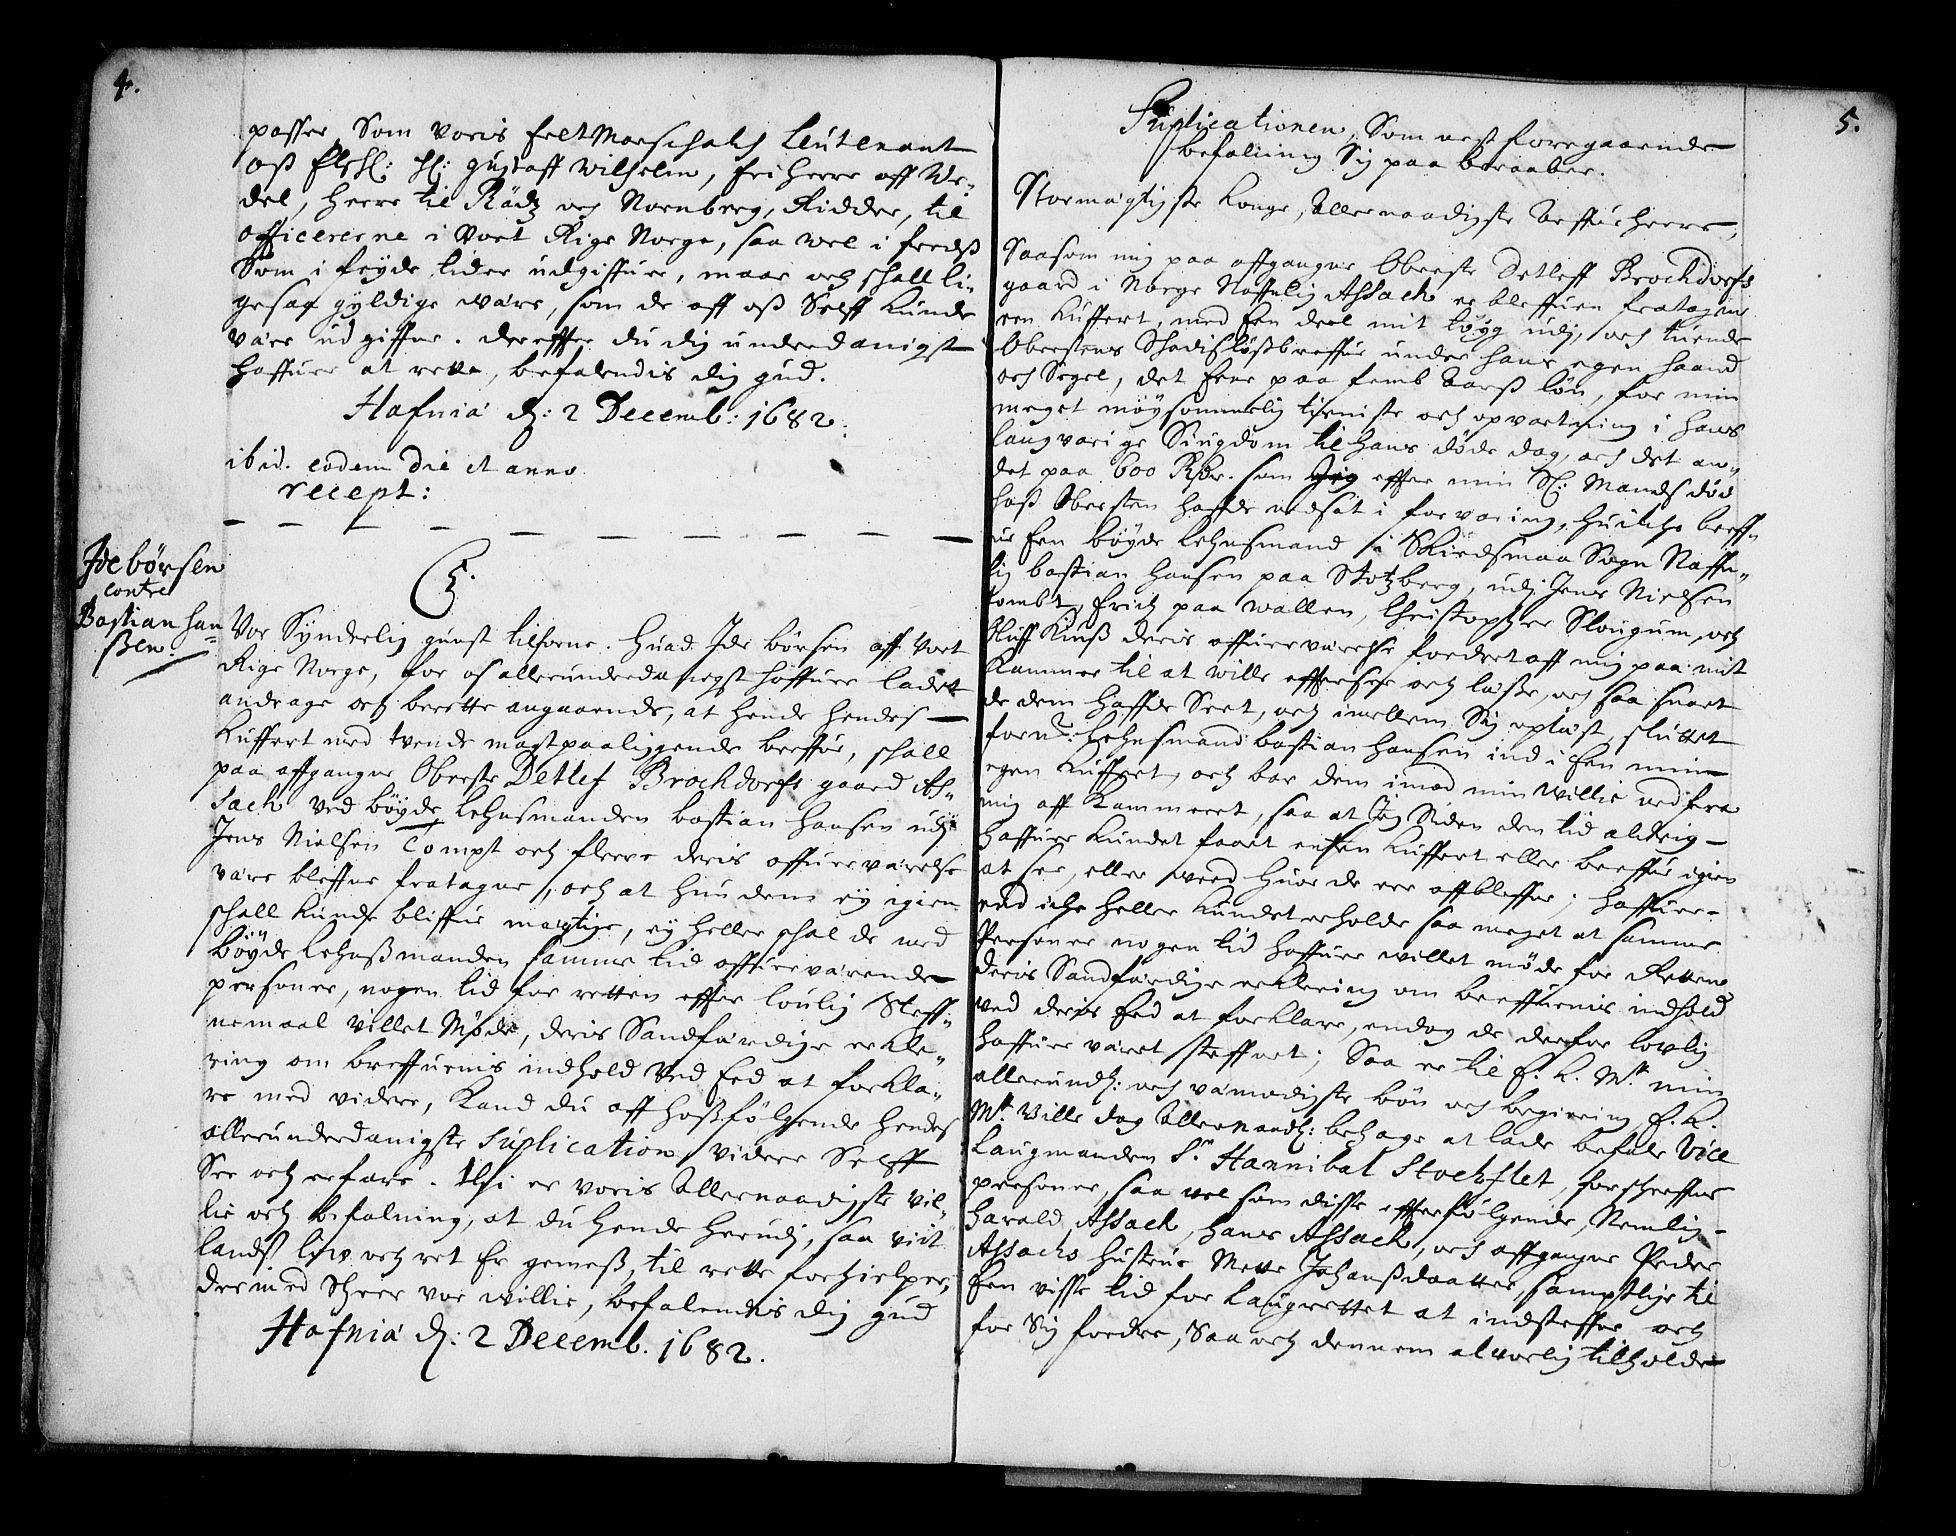 4.
passer, Som voris felt Marschalch Leutenant
oß Elschl: H: gustaff Wilhelm, fri Herre aff We,,
del, Herre til Rädz och Nornberg, Ridder, til
officererne i Vort Rige Norge, saa vel i freds
Som i feyde tider udgiffuer, maae och schall li,,
gesaa gyldige være, som de aff oß Selff kunde
være udgiffne. dereffter du dig underdanigst
haffuer at rette, befalendis dig gud.
Hafniæ d: 2 Decemb: 1682.
ibid. eodem die et anno
recept:
Ide børsen
contre
Bastian han
ßen.
C5.
Vor Synderlig gunst tilforne. Huad Ide børsen aff Vort
Rige Norge, for os allerunderdanigst haffuer ladet
andrage och berette angaaende, at hende hendes
Kuffert med tvende magtpaaliggende breffue, schall
paa affgangne Oberste Detlef Brochdorfs gaard Ah,,
sach ved bøyde Lehnsmanden bastian hansen udj
Jens Nielsen Tompt och fleere deris offuerværelse
være bleffne fratagne, och at hun dem ey igien
schall kunde bliffue megtige, ey heller schal de med
bøyde Lehnßmanden samme tid offuerværende
personer, nogen tid for retten effter loulig Steff,,
nemaal villet Møde, deris Sandfærdige erkle,,
ring om breffuenis indhold Ved Eed at forkla,,
re med videre, Kand du aff hoßfølgende hendes
allerunderdanigste Suplication videre Selff
See och erfare. Thi er voris allernaadigste vil,,
lie och befalning, at du hende herudj, saa vit
landß lov och ret Er gemeß, til rette forhielper,
dermed Scheer vor willie, befalendis dig gud
Hafniæ d: 2 Decemb. 1682.
5.
Suplicationen, Som nest foregaaende
befalning Sig paa beraaber.
Stormægtigste Konge, Allernaadigste Arffue Herre,
Saasom mig paa affgangne Oberste Detleff Brochdorfs
gaard i Norge Naffnlig Ahsach er bleffuen fratagen
een Kuffert, med Een deel mit tøyg udj, och tuende
Oberstens Schadisløßbreffue under hans egen haand
och Segel, det Eene paa femb Aarß løn, for min
meget møysommelig tieniste och opvartning i hans
langvarige Siugdom til hans døde dag, och det an,,
det paa 600 Rdr. som Jeg effter min Sl: Mands død
hoß Obersten hafde nedsat i forvaring, huilche breff,,
ue Een bøyde Lehnsmand i Skiedsmaa Sogn Naffn,,
lig bastian Hansen paa Stotzberg, udj Jens Nielsen
tombt, Erich paa wallen, Christopher Slougum, och
Kiuß deris offuerværelse fordret aff mig paa mit
Kammer til at wille effterseese och læse, och saa snart
de dem hafde Seet, och imellem Sig oplæst, sluttet
forn: Lehnsmand bastian Hansen ind i Een min
egen Kuffert, och bar dem imod min willie ned fra
mig aff Kammeret, saa at Jeg Siden den tid aldrig
haffuer kundet faaet enten Kuffert eller breffue igien
at see, eller weed huor de ere affbleffne; haffuer
end iche heller kundet erholde saa meget at samme
Personer nogen tid haffuer willet møde for Retten
deris Sandfærdige erklering om breffuenis indhold
ved deris Eed at forklare, endog de derfor lovlig
haffuer været steffnet; Saa er til E. K. Mtt. min
allerund: och ydmygste bøn och begiering E. K.
Mtt. Ville dog allernaad: behage at lade befale Vice
Laugmanden Sr. Hannibal Stochflet, forscheffne
personer, saa vel som disse effterfølgende, Nemlig
Harald Ahsach, Hans Ahsach, och affgangne Peder
Ahsachs Hustrue Mette Johanßdaatter, samptlige til
Een visse tid for Laugrettet at indsteffne och
for Sig fordre, Saa och dennem alvorlig tilholde